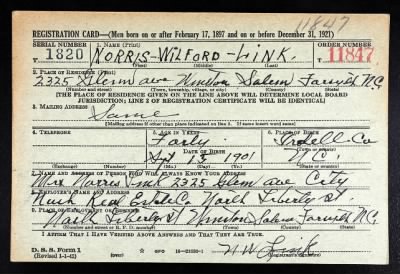 11847
REGISTRATION CARD—(Men born on or after February 17, 1897 and on or before December 31, 1921)
SERIAL NUMBER 1. NAME (Print) ORDER NUMBER
1820 NORRIS-WILFORD-LINK. 11847
(First) (Middle) (Last)
2. PLACE OF RESIDENCE (Print)
2325 Glenn ave Winston Salem Forsyth N.C.
(Number and street) (Town, township, village, or city) (County) (State)
[THE PLACE OF RESIDENCE GIVEN ON THE LINE ABOVE WILL DETERMINE LOCAL BOARD
JURISDICTION; LINE 2 OF REGISTRATION CERTIFICATE WILL BE IDENTICAL]
3. MAILING ADDRESS
Same
[Mailing address if other than place indicated on line 2. If same insert word same]
4. TELEPHONE 5. AGE IN YEARS 6. PLACE OF BIRTH
Forty Iredell Co
DATE OF BIRTH (Town or county)
Spt 15 1901 N.C.
(Exchange) (Number) (Mo.) (Day) (Yr.) (State or country)
7. NAME AND ADDRESS OF PERSON WHO WILL ALWAYS KNOW YOUR ADDRESS
Mrs Norris Link 2325 Glenn ave City
8. EMPLOYER'S NAME AND ADDRESS
Real Estate Co. North Liberty St.
9. PLACE OF EMPLOYMENT OR BUSINESS
North Liberty St Winston Salem Forsyth N.C.
(Number and street or R. F. D. number) (Town) (County) (State)
I AFFIRM THAT I HAVE VERIFIED ABOVE ANSWERS AND THAT THEY ARE TRUE.
D. S. S. Form 1
(Revised 1-1-42) (over) GPO 16—21630-1 N W Link
(Registrant's signature)